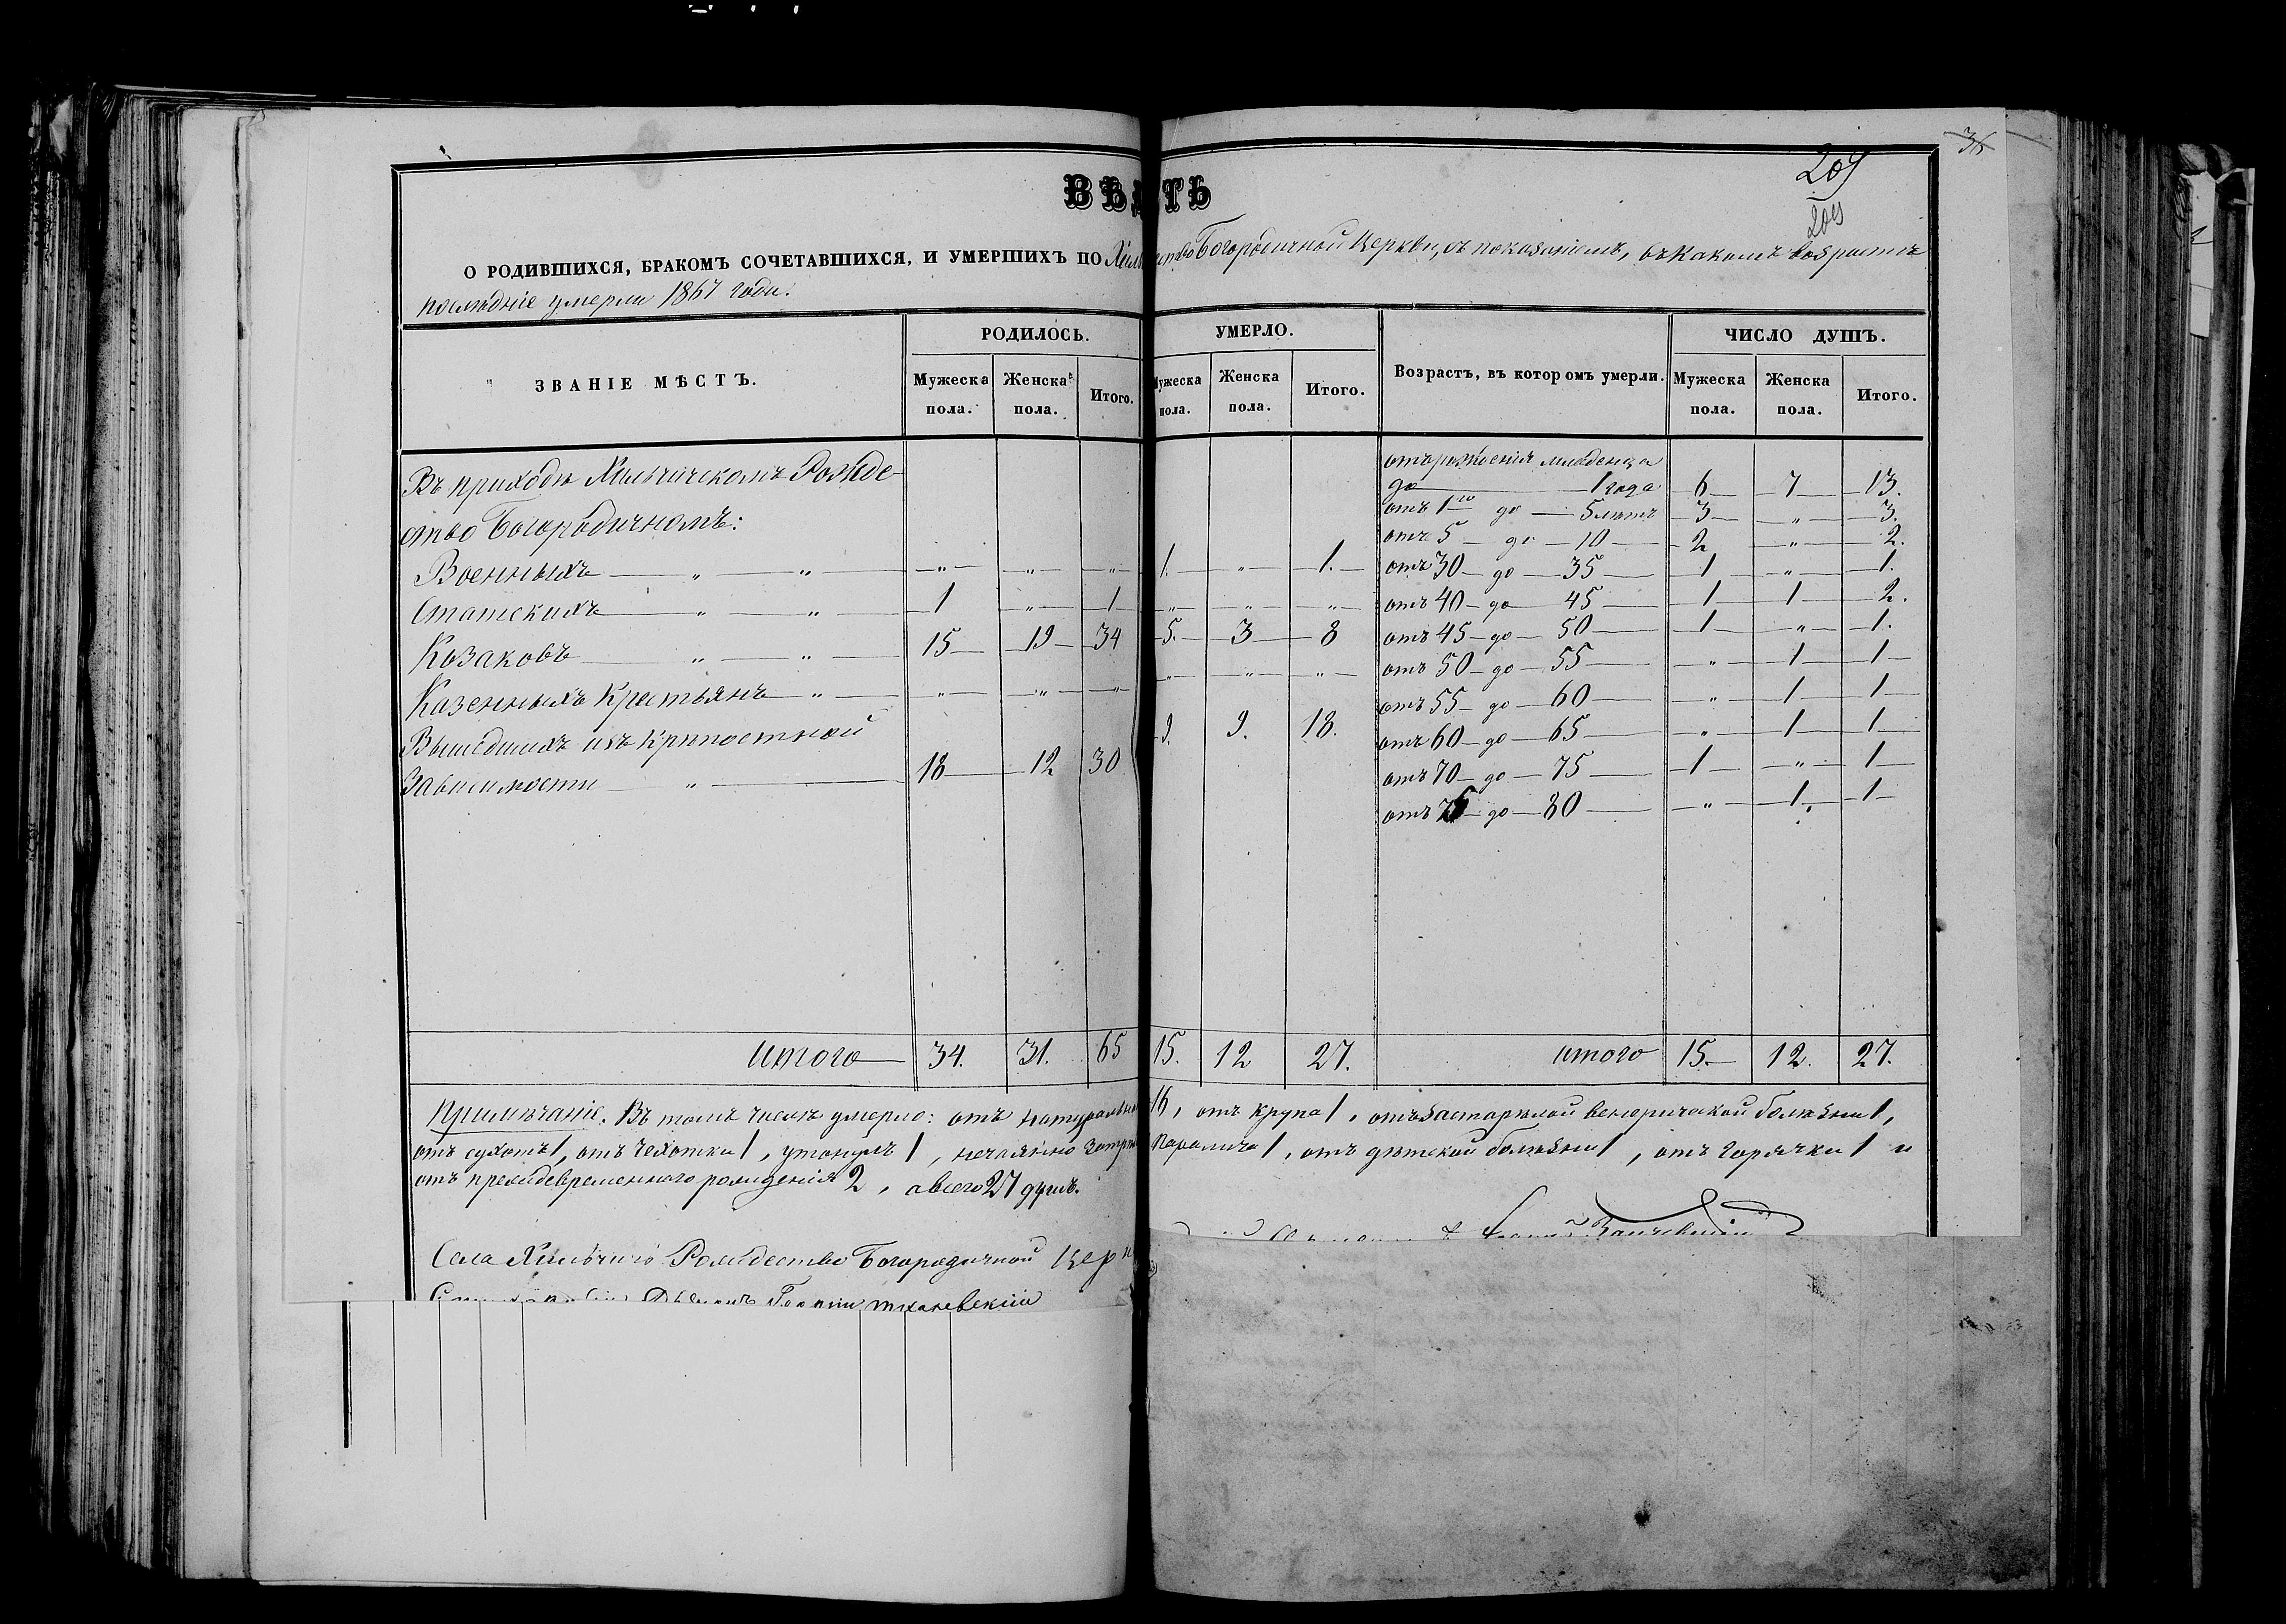 209
209
О РОДИВШИХСЯ, БРАКОМЪ СОЧЕТАВШИХСЯ, И УМЕРШИХЪ ПО Богородичной Церкви, съ показаніемъ, въ какомъ возрастѣ
послѣдніе умерли 1867 года.
ЗВАНІЕ МѢСТЪ. РОДИЛОСЬ. УМЕРЛО. Возрастъ, въ которомъ умерли. ЧИСЛО ДУШЪ.
Мужеска пола. Женска пола. Итого. Мужеска пола. Женска пола. Итого. Мужеска пола. Женска пола. Итого.
Въ приходѣ Хильчическомъ Рожде-
ство Богородичномъ:
Военныхъ — „ — „ — „ — „ — „ 1. „ 1.
Статскихъ — „ — „ — 1 „ 1 „ „ „
Козаковъ — „ — „ — 15 19 34 5. 3 8
Казенныхъ Крестьянъ — „ — „ „ „ „ „ „
Вышедшихъ изъ Крѣпостной
Зависимости — „ — 18 12 30 9. 9. 18.
отъ рожденія младенца
до — 1 года 6 7 13.
отъ 1го до — 5 лѣтъ 3 „ 3.
отъ 5 до 10 2 „ 2.
отъ 30 до 35 1 „ 1.
отъ 40 до 45 1 1 2.
отъ 45 до 50 1 „ 1.
отъ 50 до 55 „ 1 1
отъ 55 до 60 „ 1 1
отъ 60 до 65 „ 1 1
отъ 70 до 75 1 „ 1
отъ 75 до 80 „ 1. 1
итого 34. 31. 65 15. 12 27. итого 15. 12. 27.
Примѣчаніе. Въ томъ числѣ умерло: отъ 16, отъ крупа 1, отъ застарѣлой венерической болѣзни 1,
отъ сухотъ 1, отъ чехотки 1, утонулъ 1, нечаянно паралича 1, отъ дѣтской болѣзни 1, отъ горячки 1 и
отъ преждевременнаго рожденія 2, а всего 27 душъ.
Села Хильчичь Рождество Богородичной